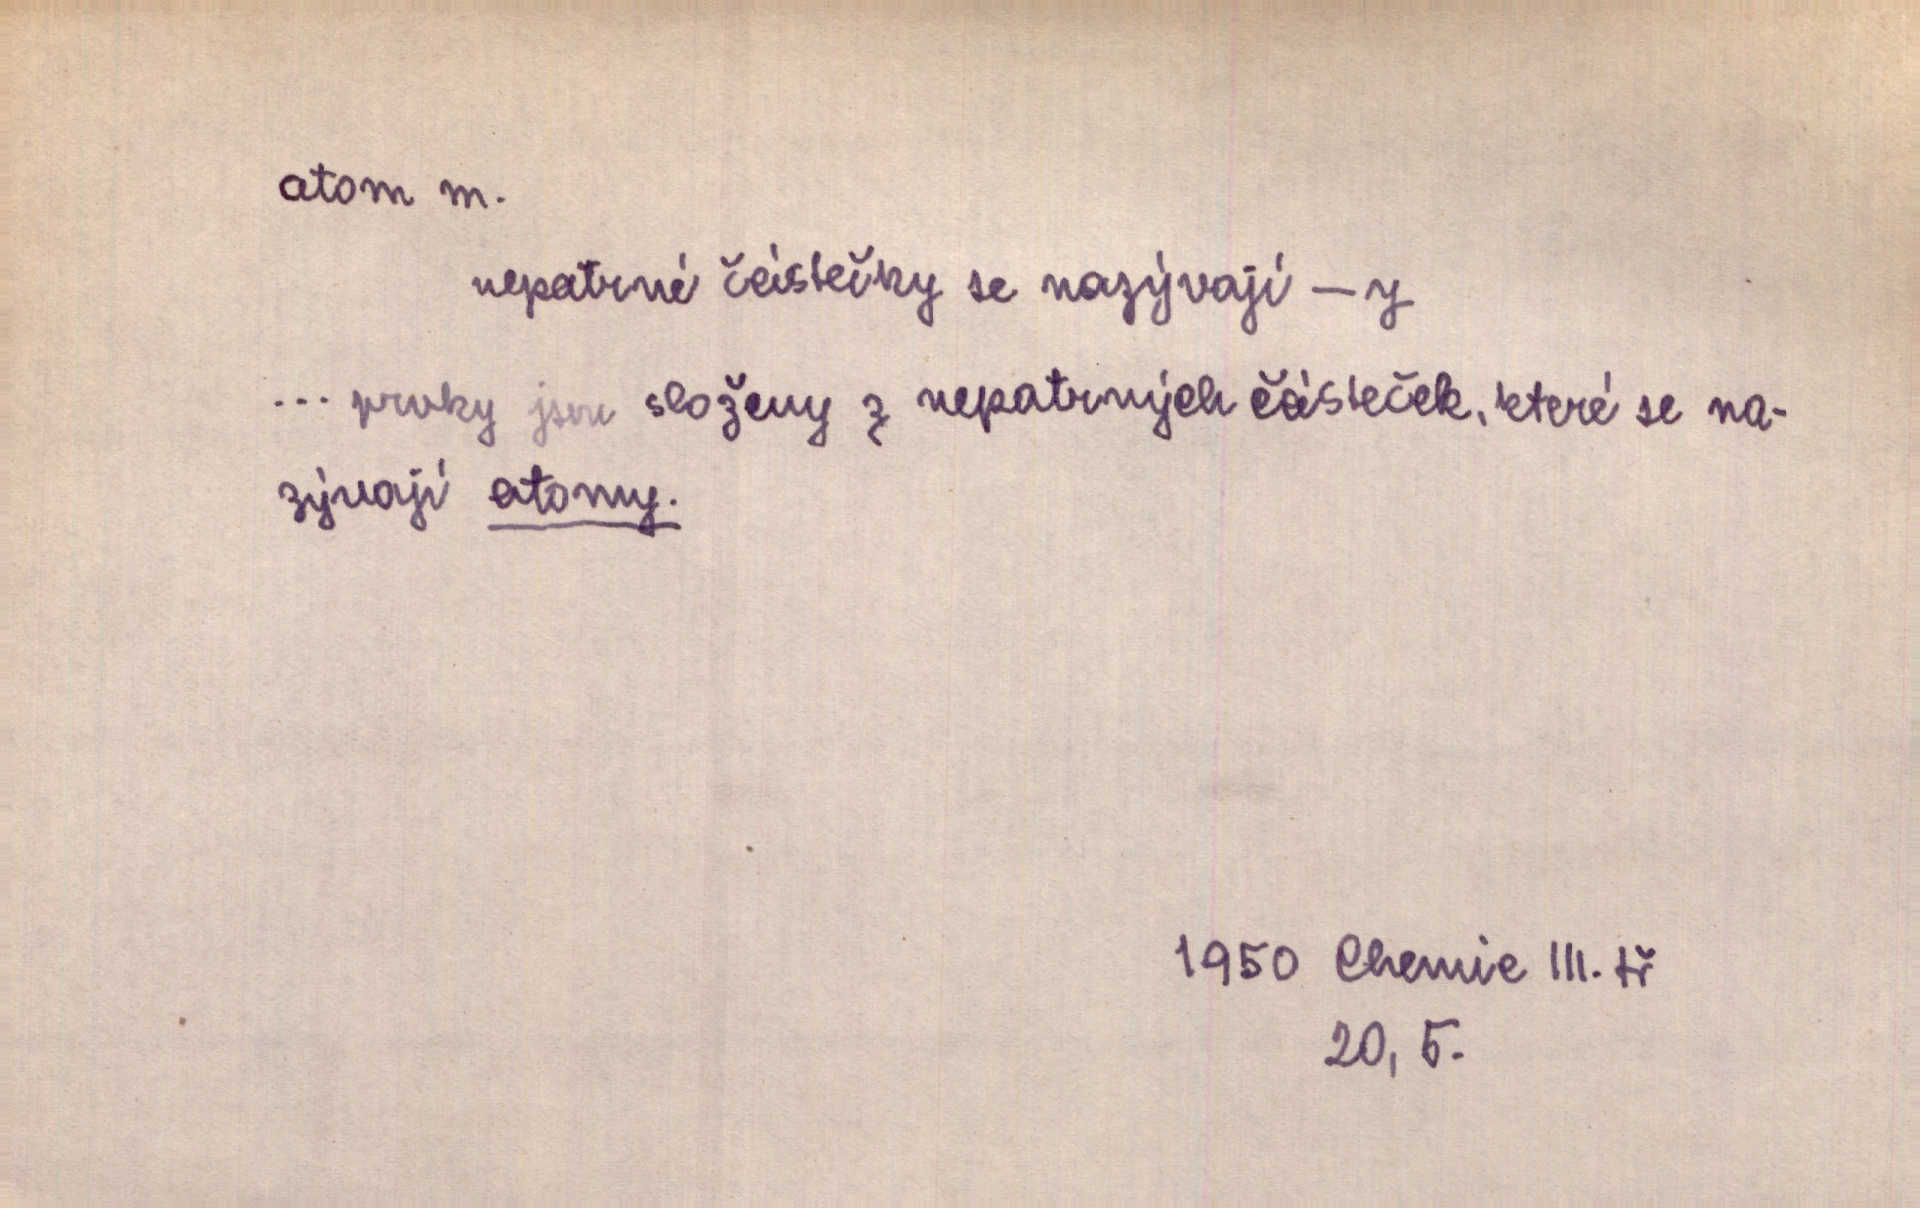 atom m.
nepatrné částečky se nazývají – y
... prvky jsou složeny z nepatrných částeček, které se na-
zývají atomy.
1950 Chemie III. tř
20, 5.